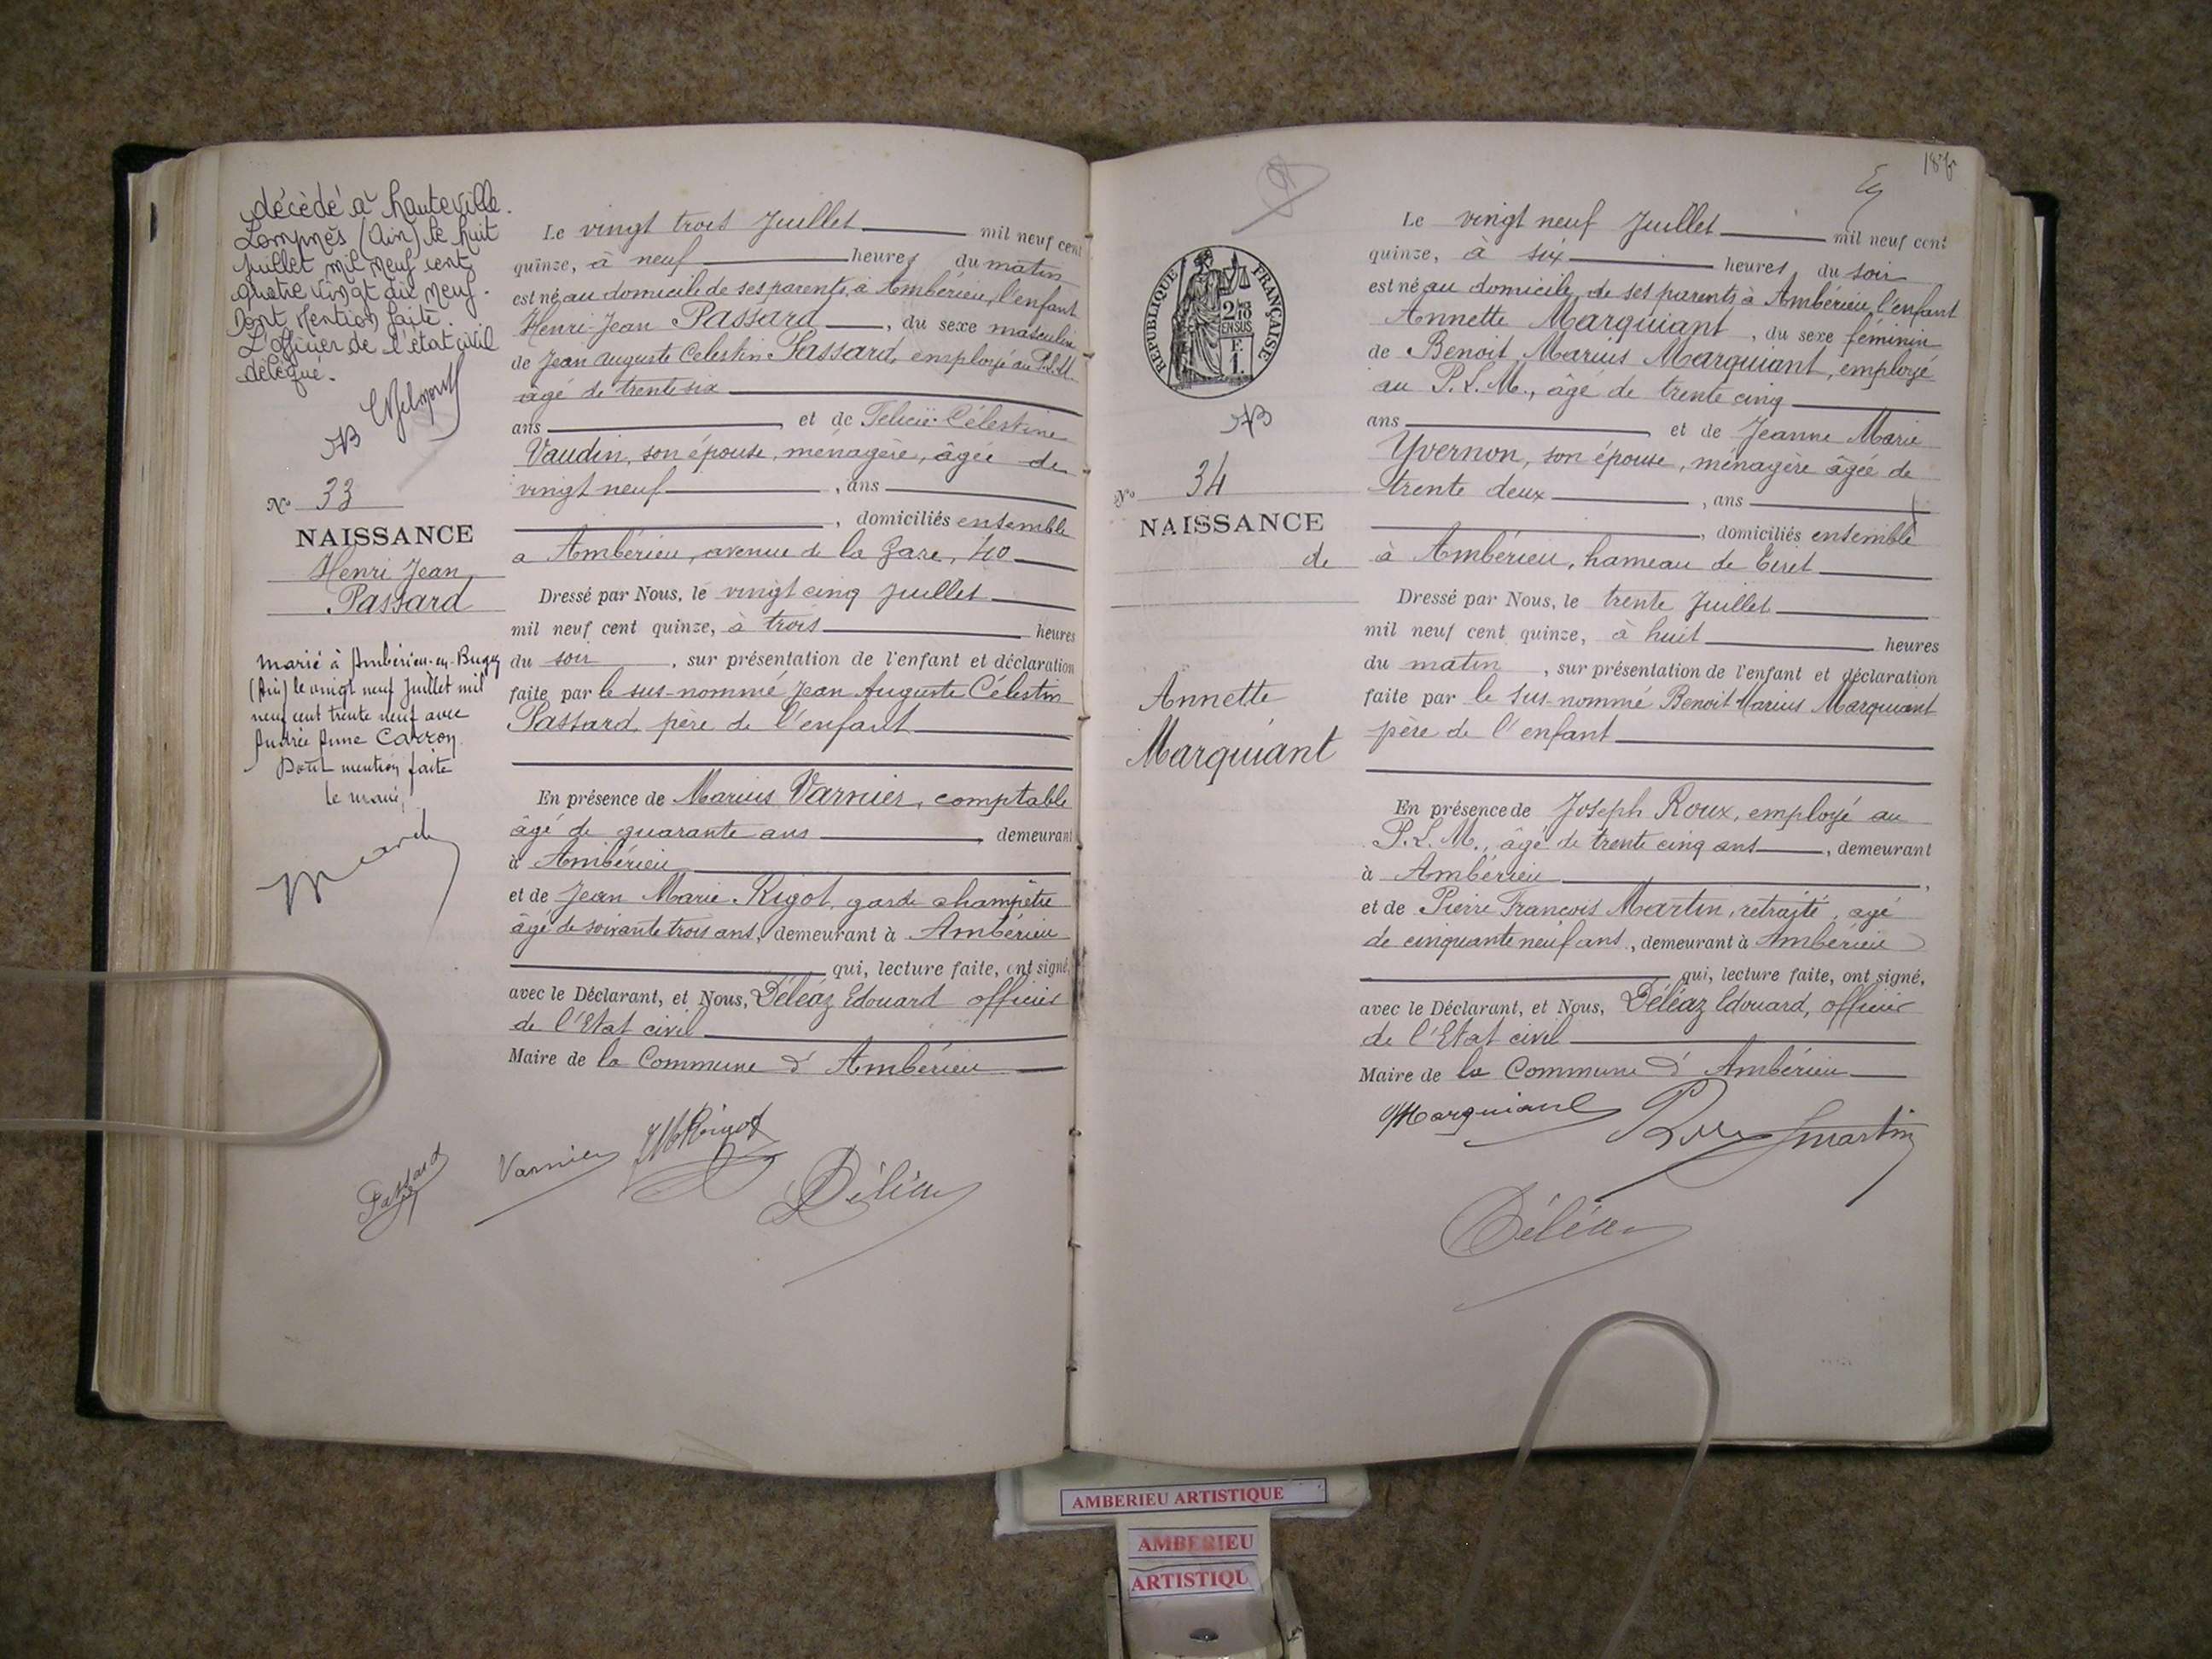 décédé à hauteville.
Lompnès (Ain) le huit
juillet mil neuf cent
quatre vingt dix neuf.
Dont Mention faite.
L'officier de l'état civil
délégué.
N° 33
NAISSANCE
Henri Jean
Passard
Marié à Ambérieu-en-Bugey
(Ain) le vingt neuf Juillet mil
neuf cent trente neuf avec
Andrée Anne Carron
Dont mention faite
le maire,
Le vingt trois Juillet mil neuf cent
quinze, à neuf heures du matin
est né au domicile de ses parents à Ambérieu, l'enfant
Henri-Jean Passard, du sexe masculin
de Jean Auguste Celestin Passard, employé au P.L.M.
âgé de trente six
ans et de Felicie Célestine
Vaudin, son épouse, ménagère, âgée de
vingt neuf, ans
, domiciliés ensemble
a Ambérieu, avenue de la Gare, 40
Dressé par Nous, le vingt cinq Juillet
mil neuf cent quinze, à trois heures
du soir, sur présentation de l'enfant et déclaration
faite par le sus-nommé Jean Auguste Célestin
Passard, père de l'enfant
En présence de Marius Varnier, comptable
âgé de quarante ans, demeurant
à Ambérieu
et de Jean Marie Rigot, garde champêtre
âgé de soixante trois ans, demeurant à Ambérieu
qui, lecture faite, ont signé,
avec le Déclarant, et Nous, Déléaz Edouard officier
de l'Etat civil
Maire de la Commune d'Ambérieu
Passard Varnier JM Rigot
Déléaz
187
RÉPUBLIQUE FRANÇAISE
2/10
EN SUS
F.
1.
N° 34
NAISSANCE
de
Annette
Marquiant
Le vingt neuf Juillet mil neuf cent
quinze, à six heures du soir
est né au domicile de ses parents à Ambérieu, l'enfant
Annette Marquiant, du sexe féminin
de Benoit Marius Marquiant, employé
au P.L.M., âgé de trente cinq
ans et de Jeanne Marie
Yvernon, son épouse, ménagère âgée de
trente deux, ans
, domiciliés ensemble
à Ambérieu, hameau de Tiret
Dressé par Nous, le trente Juillet
mil neuf cent quinze, à huit heures
du matin, sur présentation de l'enfant et déclaration
faite par le sus-nommé Benoit Marius Marquiant
père de l'enfant
En présence de Joseph Roux, employé au
P.L.M., âgé de trente cinq ans, demeurant
à Ambérieu,
et de Pierre François Martin, retraité, agé
de cinquante neuf ans, demeurant à Ambérieu
qui, lecture faite, ont signé,
avec le Déclarant, et Nous, Déléaz Edouard, officier
de l'Etat civil
Maire de la Commune d'Ambérieu
Marquiant Roux Martin
Déléaz
AMBERIEU ARTISTIQUE
AMBERIEU
ARTISTIQU